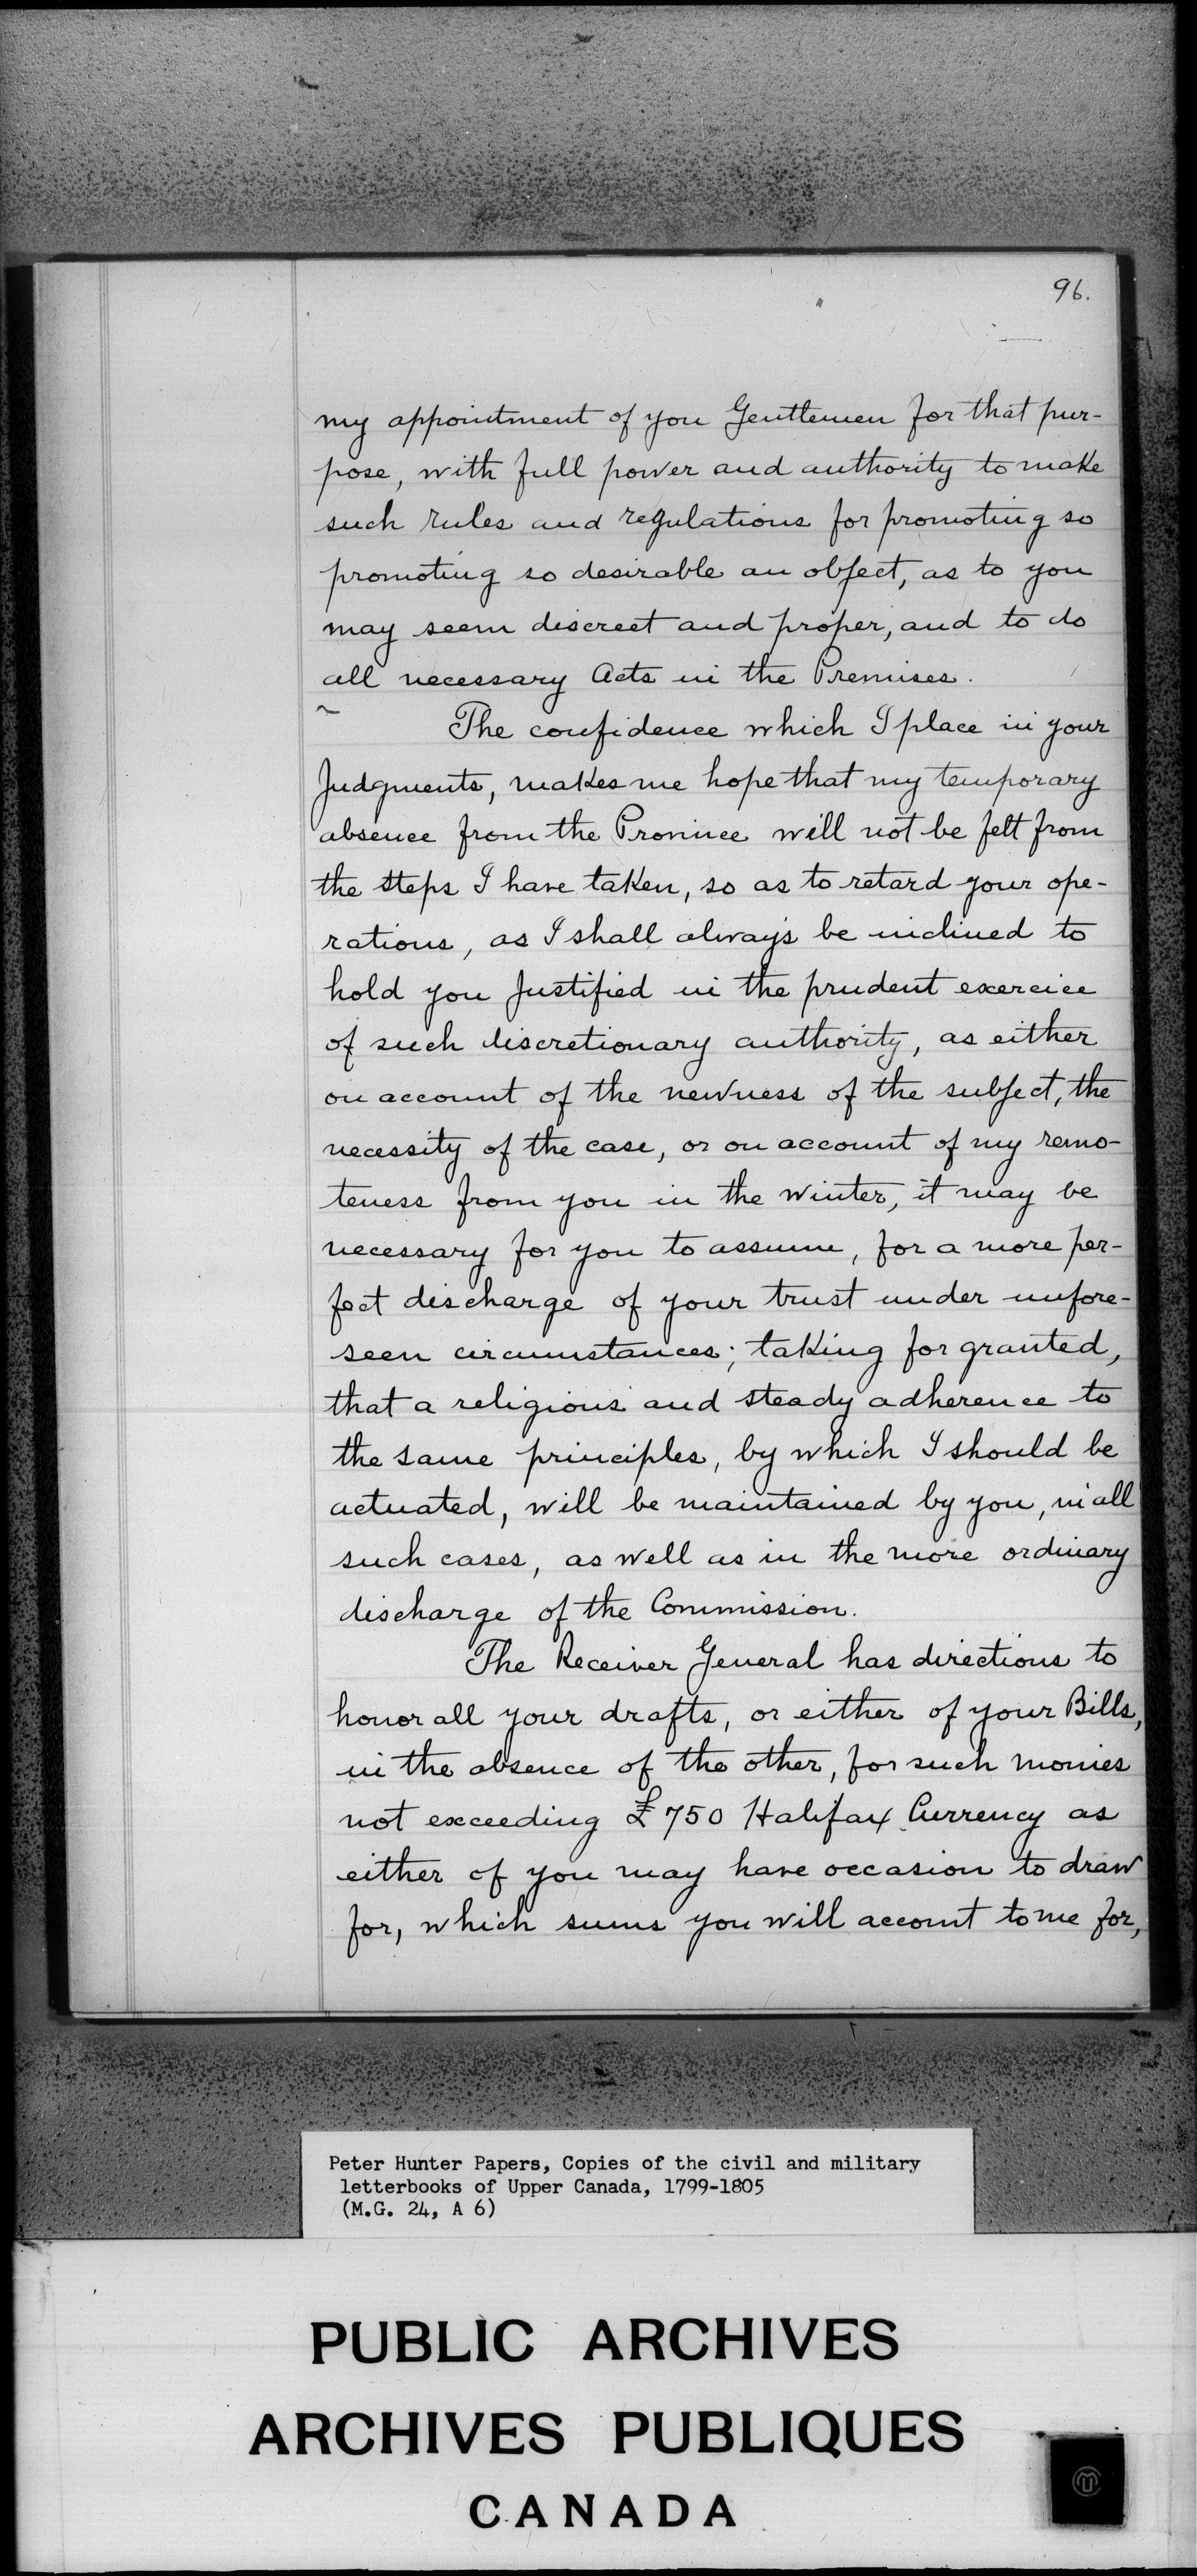 96.
my appointment of you Gentlemen for that pur-
pose, with full power and authority to make
such rules and regulations for promoting so
promoting so desirable an object, as to you
may seem discreet and proper, and to do
all necessary Acts in the Premises.
The confidence which I place in your
Judgments, makes me hope that my temporary
absence from the Province will not be felt from
the steps I have taken, so as to retard your ope-
rations, as I shall always be inclined to
hold you Justified in the prudent exercice
of such discretionary authority, as either
on account of the newness of the subject, the
necessity of the case, or on account of my remo-
teness from you in the winter, it may be
necessary for you to assume, for a more per-
fect discharge of your trust under unfore-
seen circumstances; taking for granted,
that a religious and steady adherence to
the same principles, by which I should be
actuated, will be maintained by you, in all
such cases, as well as in the more ordinary
discharge of the Commission.
The Receiver General has directions to
honor all your drafts, or either of your Bills,
in the absence of the other, for such monies
not exceeding £750 Halifax Currency as
either of you may have occasion to draw
for, which sums you will account to me for,
Peter Hunter Papers, Copies of the civil and military
letterbooks of Upper Canada, 1799-1805
(M.G. 24, A 6)
PUBLIC ARCHIVES
ARCHIVES PUBLIQUES
CANADA